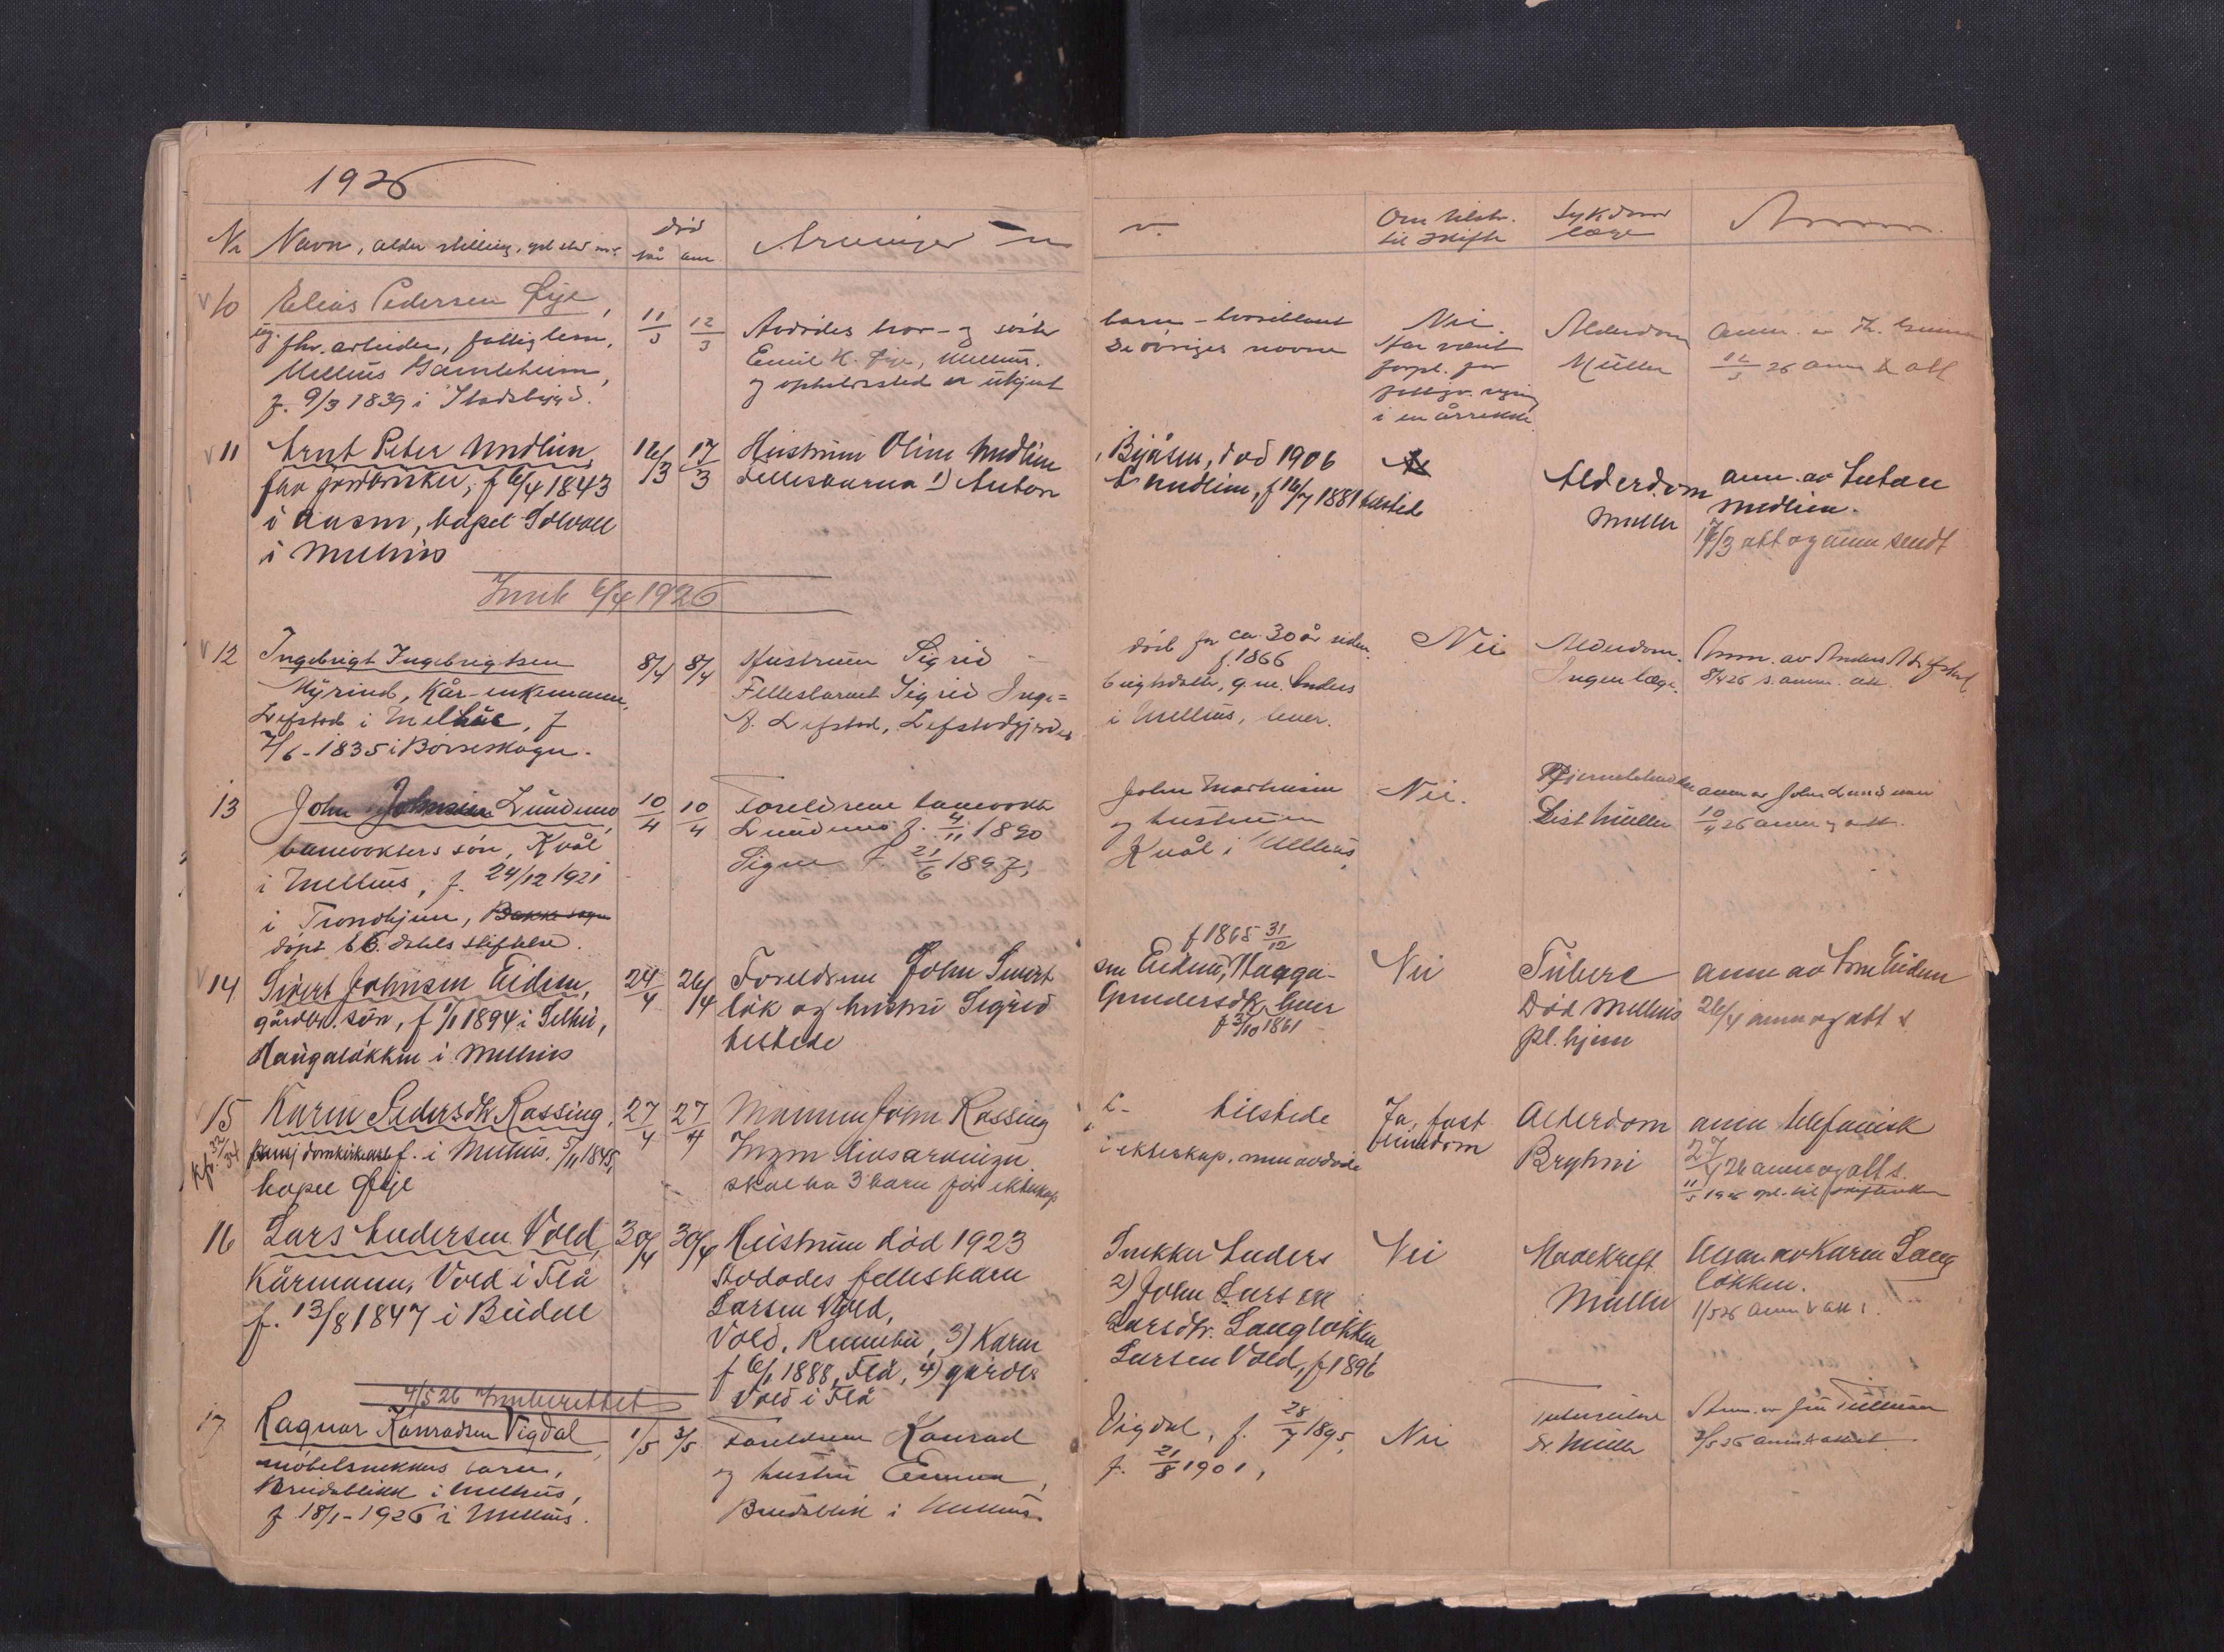 1926
Nr Navn, alder stilling,
død
når anm.
Arvinger
Om tilstr. til skifte
Sykdom læge
Anm.
10 Elias Pedersen Øye,
ug. fhv. arbeider, fattiglem,
Melhus Gamleheim,
f. 9/3 1839 i Stadsbygd.
11/3 12/3
Avdødes bror- og søster
Emil H. Øye, Melhus.
og opholdssted er ukjent
barn - hvoriblant
De øvriges navne
Nei.
Har vært
forpl. for
i en årrekke
Alderdom
Müller
12/3 26 anm & att
11 Arnt Peter Undlien
fhv gårdbruker, f 6/4 1843
i
i Melhus
16/3 17/3
Hustruen Oline Undlien
Fellesbarna 1) Anton
Byåsen, død 1906
Undlien, f 16/7 1881 tilstede
Alderdom
Müller
anm. av Anton
Undlien.
17/3 att og anm sendt
Innb 6/4 1926
12 Ingebrigt Ingebrigtsen
Myrind, Kår-enkemann,
Lefstad i Melhus, f
7/6-1835 i Børseskogn.
8/4 8/4
Hustruen Sigrid -
Fellesbarnet Sigrid Inge=
A. Lefstad, Lefstadgjerdet
død for ca. 30 år siden.
f. 1866
brigtsdatter, g.m. Anders
i Melhus, lever.
Nei
Alderdom.
Ingen læge.
Anm. av Anders A Lefstad
8/4 26 s. anm. att.
13 John Johnsen Lundemo
banevokters søn, Kvål
i Melhus, f. 24/12 1921
i Trondhjem, Bakke sogn
døpt E.C. Dahls stiftelse.
10/4 10/4
Foreldrene banevokter
Lundemo f. 4/11 1890
Signe f. 21/6 1897,
John Martinsen
og hustruen
Kvål i Melhus,
Nei.
Dist Müller
anm av John Lundemo
10/4 26 anm og att.
14 Sivert Johnsen Eidem,
gårdbr. søn, f 1/1 1894 i Selbu,
Haugaløkken i Melhus
24/4 26/4
Foreldrene John Sivert
løk og hustru Sigrid
tilstede
f 1865 31/12
sen Eidem, Hauga-
Gundersdtr, lever
f 3/10 1861
Nei
Tuberc
Død Melhus
pl. hjem
anm av Eidem
26/4 anm og att s
15 Karen Pedersdtr Rossing,
f. i Melhus, 5/11 1845,
bopæl Øye
27/4 27/4
Mannen John Rossing
Ingen livsarvinger
skal ha 3 barn før ekteskap
tilstede
i ekteskap, men avdøde
Ja, fast
eiendom
Alderdom
Bryhni
anm telefonisk
27/4 26 anm og att s.
16 Lars Andersen Vold,
Kårmann, Vold i Flå
f. 13/8 1847 i Budal
30/4 30/4
Hustruen død 1923
Avdødes fellesbarn
Larsen Vold,
Vold, Rennebu, 3) Karen
f 6/1 1888, Flå, 4) gårdbr
Vold i Flå
Snekker Anders
2) John Larsen
Larsdtr. Langløkken
Larsen Vold, f 1896
Nei
Mavekreft
Müller
Anm. av Karen Lang
løkken.
1/5 26 anm & att s.
4/5 26 Innberettet
17 Ragnar Konradsen Vigdal
møbelsnekkers barn,
Breidablikk i Melhus,
f 18/1-1926 i Melhus.
1/5 3/5
Foreldrene Konrad
og hustru Emma,
Breidablik i Melhus.
Vigdal, f. 28/7 1895,
f. 21/8 1901,
Nei
Dr Müller
3/5 26 anm & attest